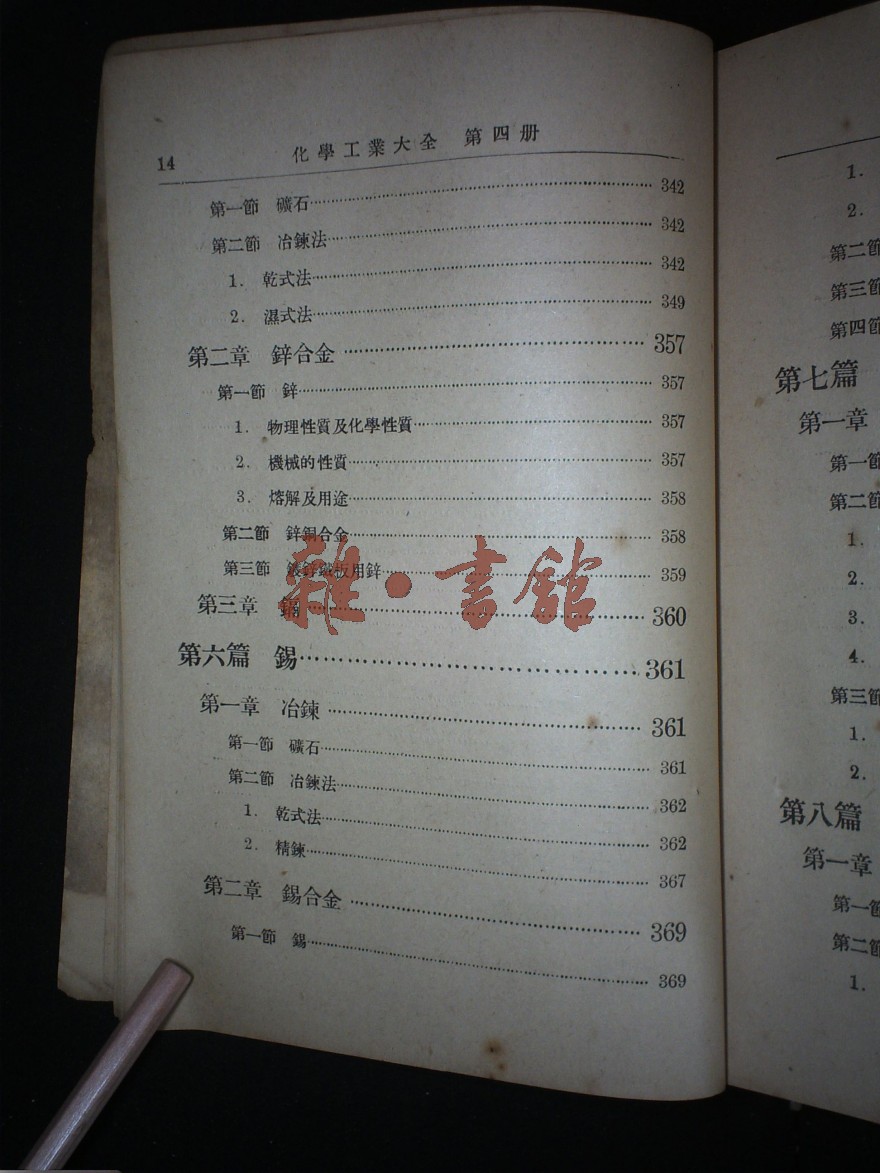 14 化學工業大全 第四册
第一節 礦石 342
第二節 冶鍊法 342
1. 乾式法 342
2. 濕式法 349
第二章 鋅合金 357
第一節 鋅 357
1. 物理性質及化學性質 357
2. 機械的性質 357
3. 熔解及用途 358
第二節 鋅銅合金 358
第三節 鍍鋅鐵板用鋅 359
第三章 鎘 360
第六篇 錫 361
第一章 冶鍊 361
第一節 礦石 361
第二節 冶鍊法 362
1. 乾式法 362
2. 精鍊 367
第二章 錫合金 369
第一節 錫 369
雜·書館
1.
2.
第二節
第三節
第四節
第七篇
第一章
第一節
第二節
1.
2.
3.
4.
第三節
1.
2.
第八篇
第一章
第一節
第二節
1.